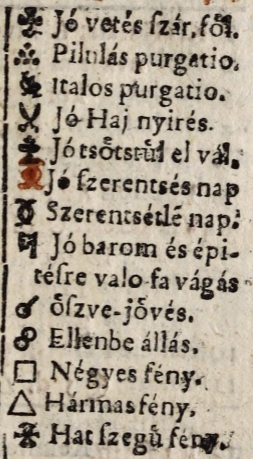 Jó vetés ſzár, fől.
Pilulás purgatio.
Italos purgatio.
Jó Haj nyirés.
Jó tsőtstűl el vál.
Jó ſzerentsés nap
Szerentsétlē nap.
Jó barom és épi-
tésre valo fa vágás
őſzve-jővés.
Ellenbe állás.
Négyes fény.
Hármas fény.
Hat ſzegű fény.